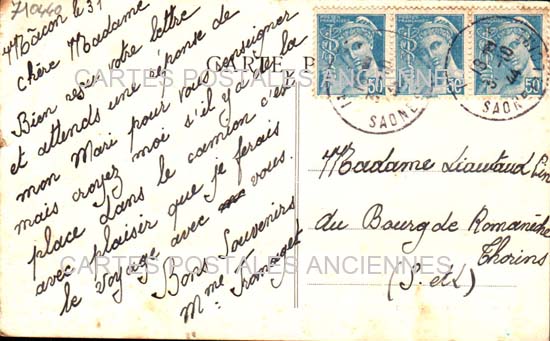 710440
Mâcon le 31
Chère Madame
Bien reçu votre lettre
et attends une réponse de
mon Mari pour vous renseigner
mais croyez moi s'il y a de la
place dans le camion c'est
avec plaisir que je ferais
le voyage avec vous.
Bons Souvenirs
Mme Fromaget
CARTE P
50
50
50
SAONE
SAONE
Madame Liautaud
du Bourg de Romanèche
Thorins
(S.-et-L)
CARTES POSTALES ANCIENNES
CARTES POSTALES ANCIENNES